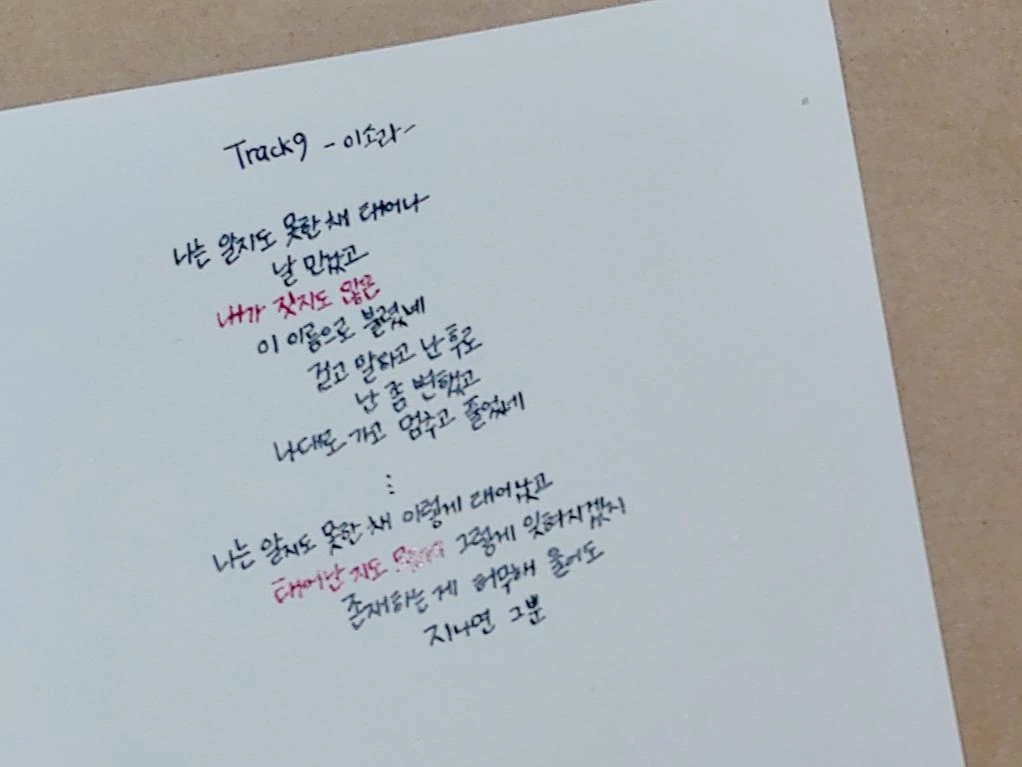 Track9 - 이소라 -
나는 알지도 못한 채 태어나
날 만났고
내가 짓지도 않은
이 이름으로 불렸네
걷고 말하고 난 후로
난 좀 변했고
나대로 가고 멈추고 풀었네
⋮
나는 알지도 못한 채 이렇게 태어났고
태어난 지도 그렇게 잊혀지겠지
존재하는 게 허무해 울어도
지나면 그뿐